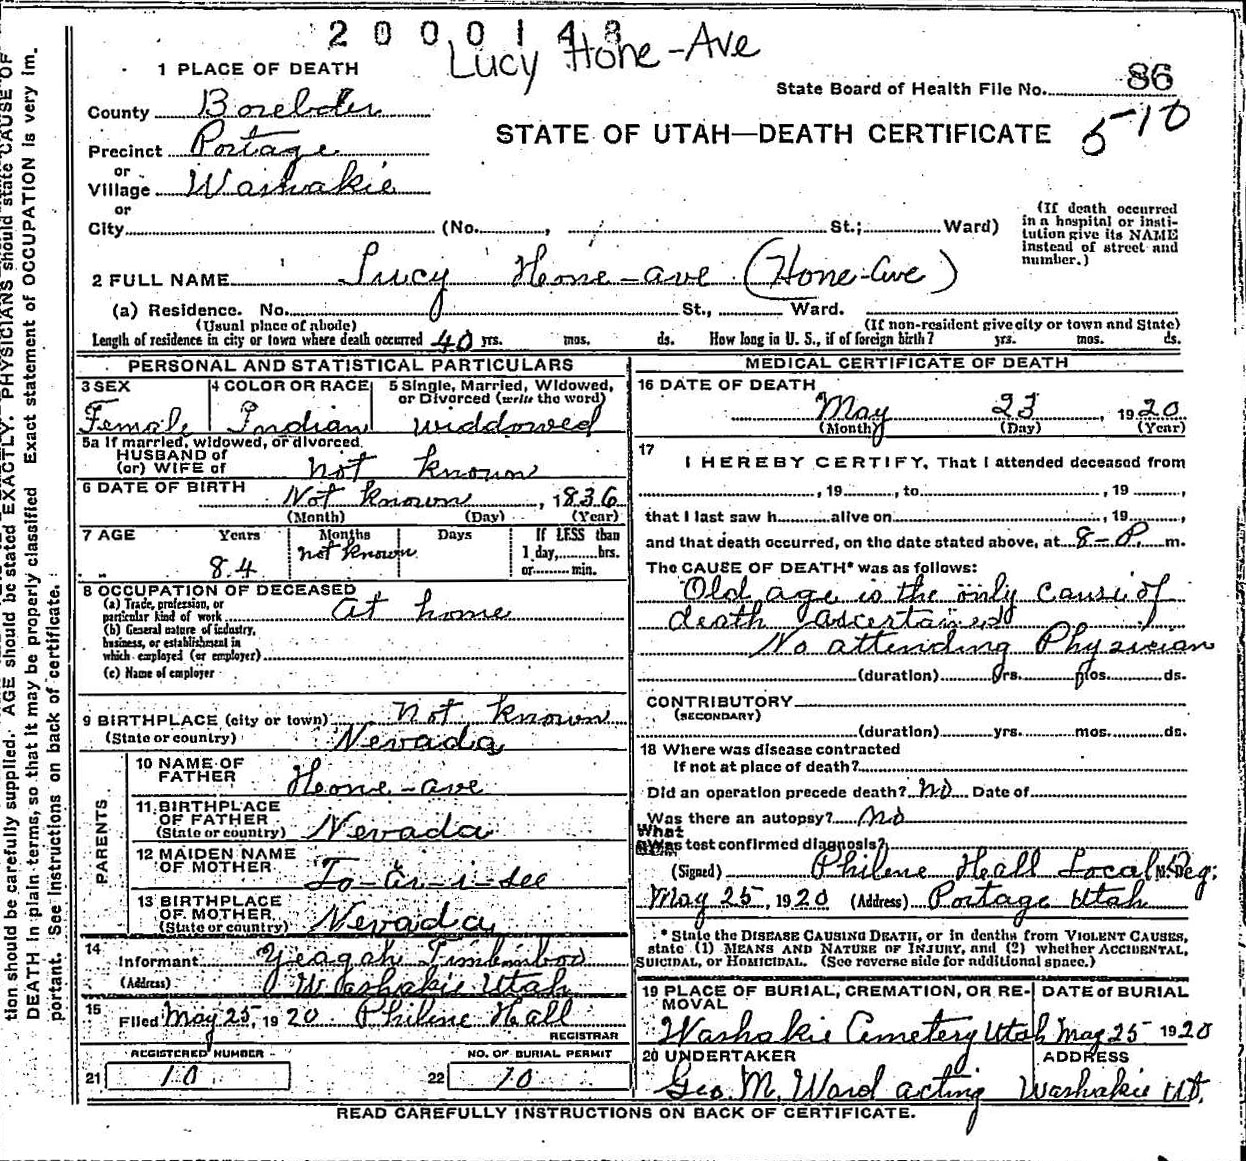 2000148
Lucy Hone-Ave
1 PLACE OF DEATH
State Board of Health File No. 86
5-10
County Boxelder
STATE OF UTAH—DEATH CERTIFICATE
Precinct Portage
or
Village Washakie
or
City (No. , St.; Ward)
(If death occurred
in a hospital or insti-
tution give its NAME
instead of street and
number.)
2 FULL NAME Lucy Hone-ave (Hone-Ave)
(a) Residence. No. St., Ward.
(Usual place of abode) (If non-resident give city or town and State)
Length of residence in city or town where death occurred 40 yrs. mos. ds. How long in U. S., if of foreign birth? yrs. mos. ds.
PERSONAL AND STATISTICAL PARTICULARS
3 SEX
Female
4 COLOR OR RACE
Indian
5 Single, Married, Widowed,
or Divorced (write the word)
widdowed
5a If married, widowed, or divorced.
HUSBAND of
(or) WIFE of not known
6 DATE OF BIRTH Not known, 1836
(Month) (Day) (Year)
7 AGE Years Months Days If LESS than
84 not known 1 day, hrs.
or min.
8 OCCUPATION OF DECEASED
(a) Trade, profession, or
particular kind of work At home
(b) General nature of industry,
business, or establishment in
which employed (or employer)
(c) Name of employer
9 BIRTHPLACE (city or town) not known
(State or country) Nevada
PARENTS
10 NAME OF
FATHER Hone-ave
11 BIRTHPLACE
OF FATHER
(State or country) Nevada
12 MAIDEN NAME
OF MOTHER
13 BIRTHPLACE
OF MOTHER
(State or country) Nevada
14
Informant Yeagah Timbimboo
(Address) Washakie Utah
15
Filed May 25, 1920 Philene Hall
REGISTRAR
REGISTERED NUMBER
21 10
NO. OF BURIAL PERMIT
22 10
MEDICAL CERTIFICATE OF DEATH
16 DATE OF DEATH
May 23, 1920
(Month) (Day) (Year)
17
I HEREBY CERTIFY, That I attended deceased from
, 19 , to , 19 ,
that I last saw h alive on , 19 ,
and that death occurred, on the date stated above, at 8-P. m.
The CAUSE OF DEATH* was as follows:
Old age is the only cause of
death ascertained
No attending Physician
(duration) yrs. mos. ds.
CONTRIBUTORY
(SECONDARY)
(duration) yrs. mos. ds.
18 Where was disease contracted
If not at place of death?
Did an operation precede death? No Date of
Was there an autopsy? No
What test confirmed diagnosis?
(Signed) Philene Hall Local Reg.
May 25, 1920 (Address) Portage Utah
* State the DISEASE CAUSING DEATH, or in deaths from VIOLENT CAUSES,
state (1) MEANS AND NATURE OF INJURY, and (2) whether ACCIDENTAL,
SUICIDAL, or HOMICIDAL. (See reverse side for additional space.)
19 PLACE OF BURIAL, CREMATION, OR RE-
MOVAL
Washakie Cemetery Utah
DATE of BURIAL
May 25 1920
20 UNDERTAKER
Geo. M. Ward acting
ADDRESS
Washakie Ut.
READ CAREFULLY INSTRUCTIONS ON BACK OF CERTIFICATE.
tion should be carefully supplied. AGE should be stated EXACTLY. PHYSICIANS should state CAUSE OF
DEATH in plain terms, so that it may be properly classified Exact statement of OCCUPATION is very im.
portant. See instructions on back of certificate.